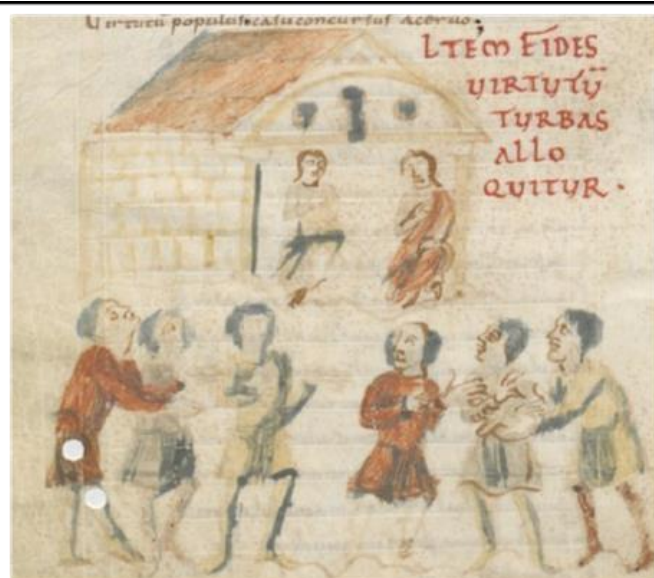 Virtutū populus casu concursus aceruo;
ITEM FIDES
VIRTUTŪ
TURBAS
ALLO
QUITUR ·